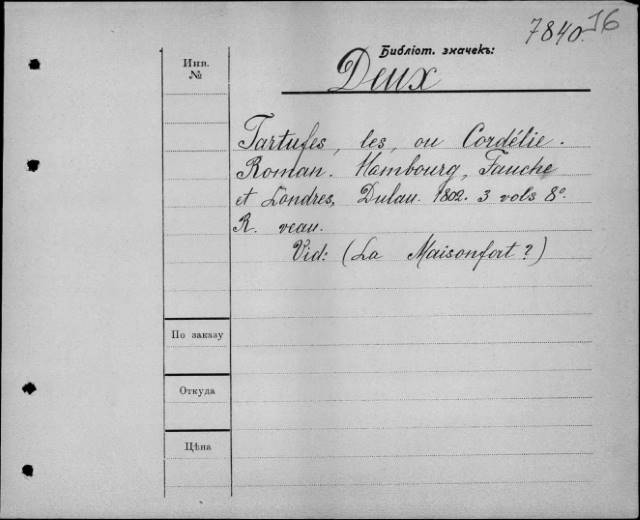 7840. 16
Библіот. значекъ:
Deux
Инв.
№
Tartufes, les, ou Cordélie.
Roman. Hambourg, Fauche
et Londres, Dulau. 1802. 3 vols 8°.
R. veau.
Vid: (La Maisonfort?)
По заказу
Откуда
Цѣна